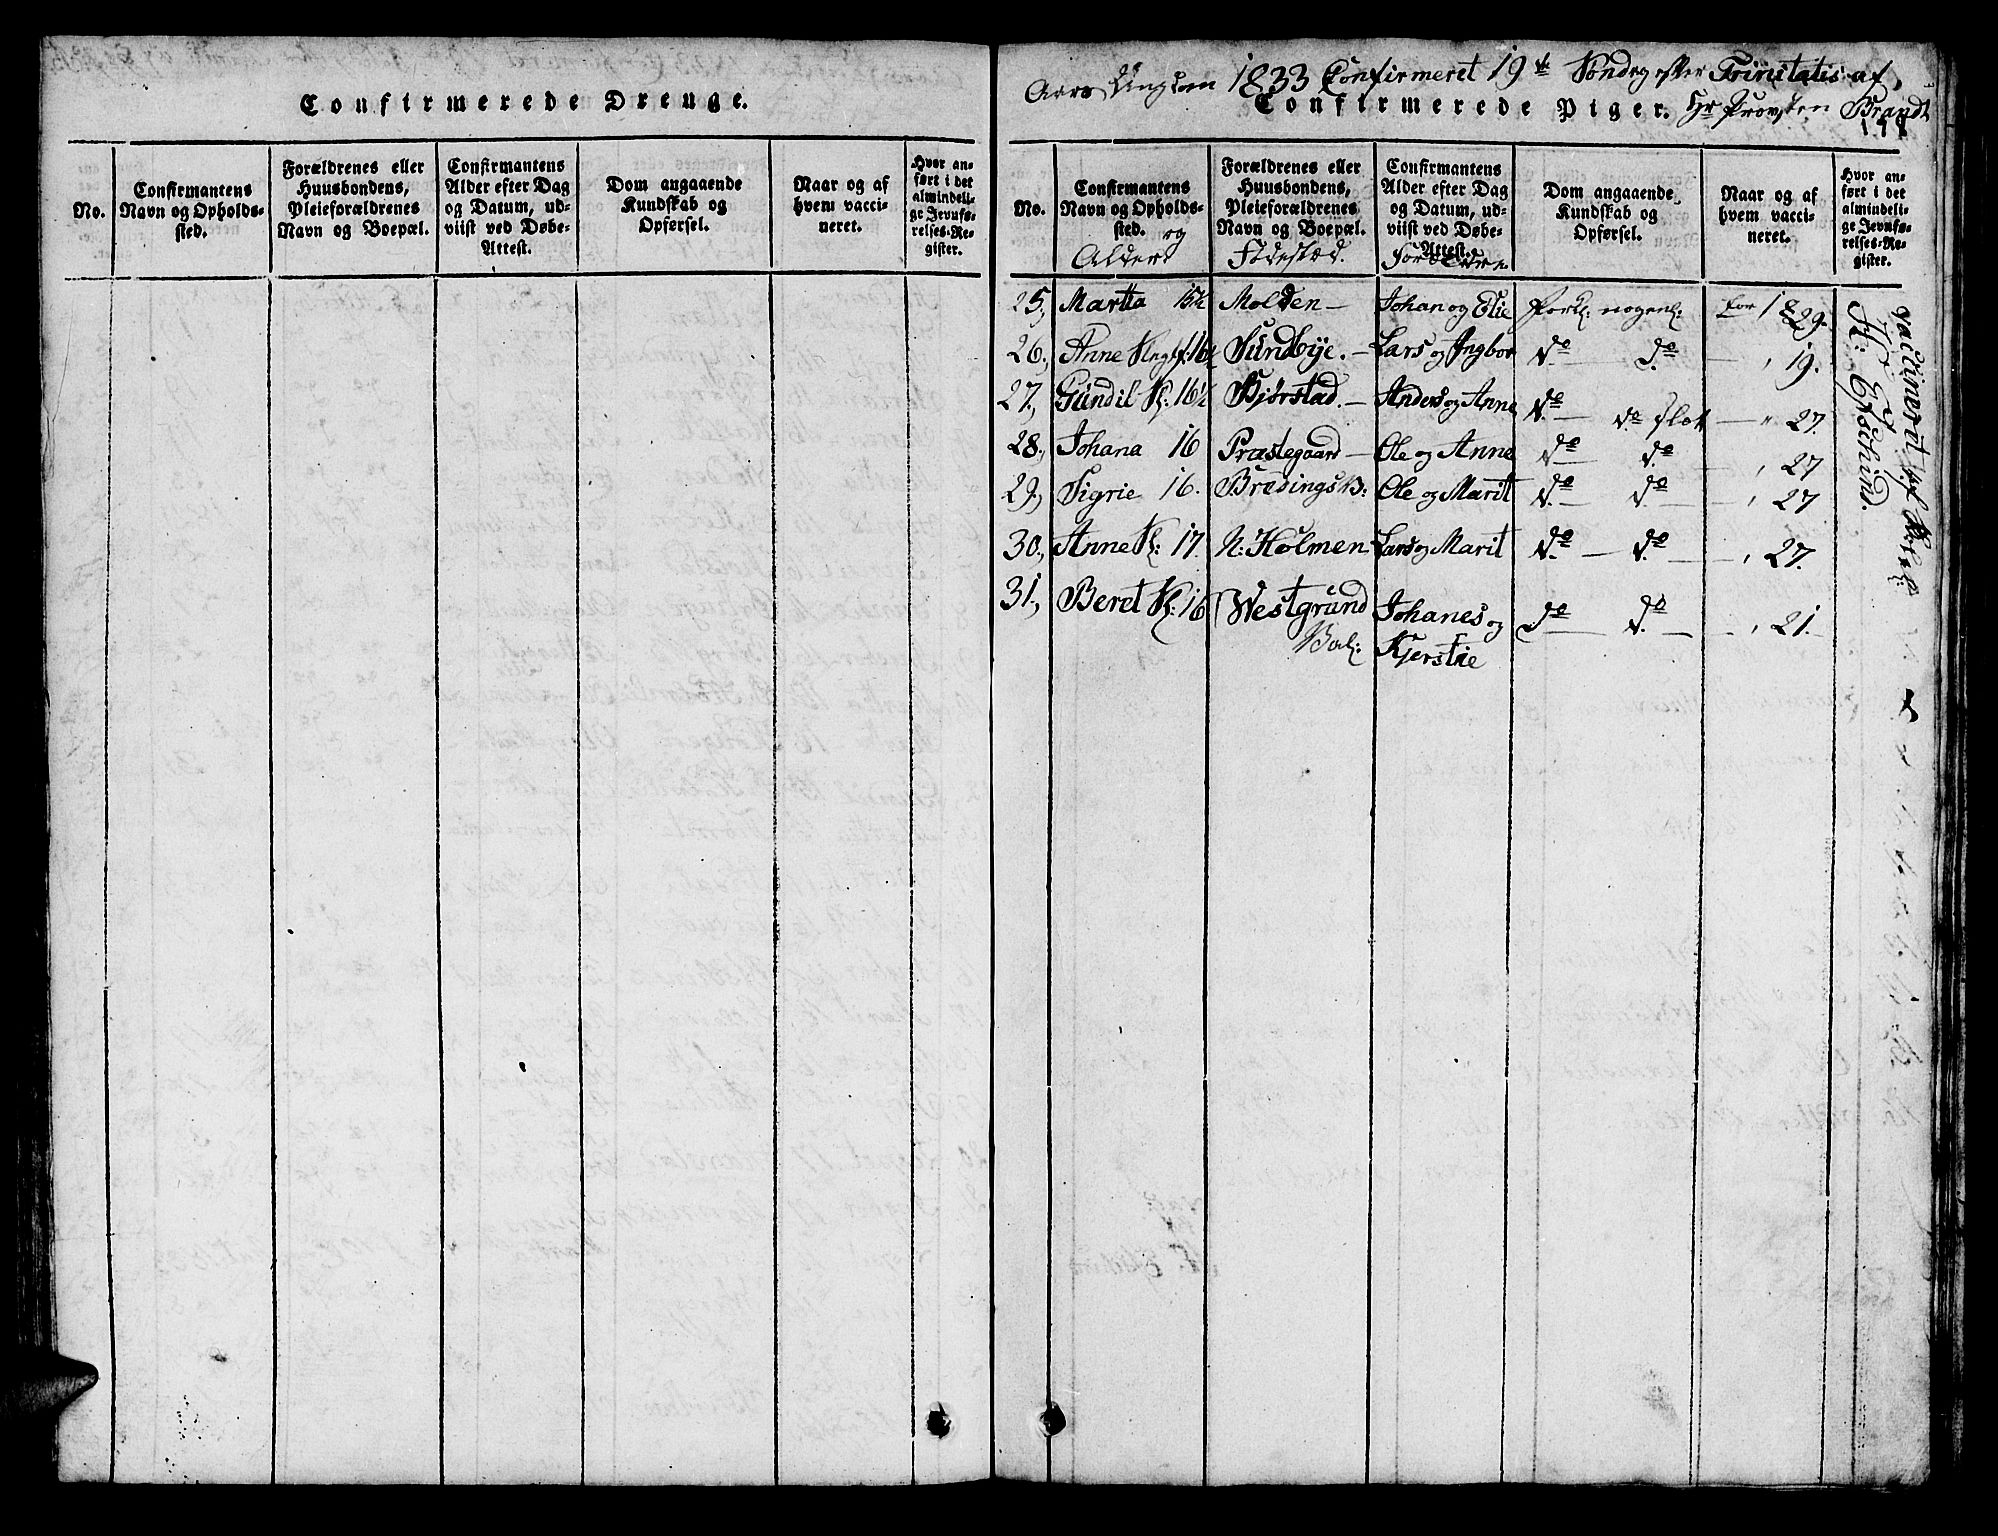 Confirmerede Drenge.
No.
Confirmantens Navn og Opholds-sted.
Forældrenes eller Huusbondens, Pleieforældrenes Navn og Boepæl.
Confirmantens Alder efter Dag og Datum, ud-viist ved Døbe-Attest.
Dom angaaende Kundskab og Opførsel.
Naar og af hvem vacci-neret.
Hvor an-ført i det almindeli-ge Jevnfø-relses-Re-gister.
1833 Confirmeret 19de Søndag efter Trinitatis af
Confirmerede Piger. Hr Provsten Brandt
No.
Confirmantens Navn og Opholds-sted. og Alder
Forældrenes eller Huusbondens, Pleieforældrenes Navn og Boepæl. Fødested.
Confirmantens Alder efter Dag og Datum, ud-viist ved Døbe-Attest. Forældre
Dom angaaende Kundskab og Opførsel.
Naar og af hvem vacci-neret.
Hvor an-ført i det almindeli-ge Jevnfø-relses-Re-gister.
25, Martta 15½ Molden – Johan og Elie nogenl: for 1829.
26, Anne 16½ Sundbye. – Lars og Ingbor do do – 19.
27, Gundil K: 16½ Bjørstad. – Anders og Anne do – do slet – " 27.
28, Johana 16 Præstegaard – Ole og Anne do do – 27
29, Sigrie 16. Ole og Marit do – do – 27
30, Anne K: 17. N: Holmen Lars og Marit do – do – 27.
31, Beret K: 16 Westgrund Johanes og do do – 21.
Kjerstie
vaccineret af
K: